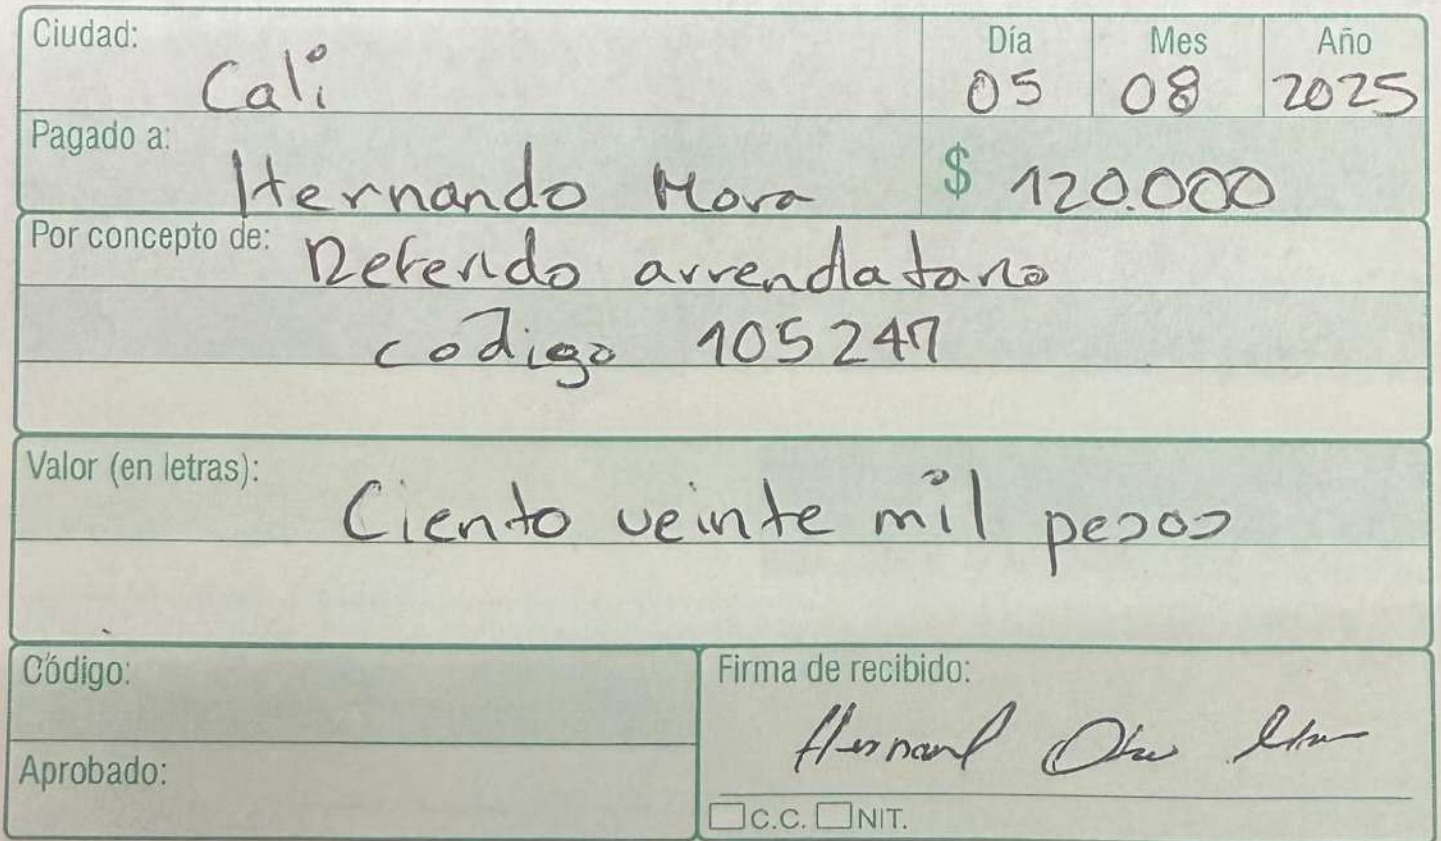 Ciudad: Cali
Día Mes Año
05 08 2025
Pagado a: Hernando Mora $ 120.000
Por concepto de: Referido arrendatario
codigo 105247
Valor (en letras): Ciento veinte mil pesos
Código:
Firma de recibido:
Aprobado:
C.C. NIT.